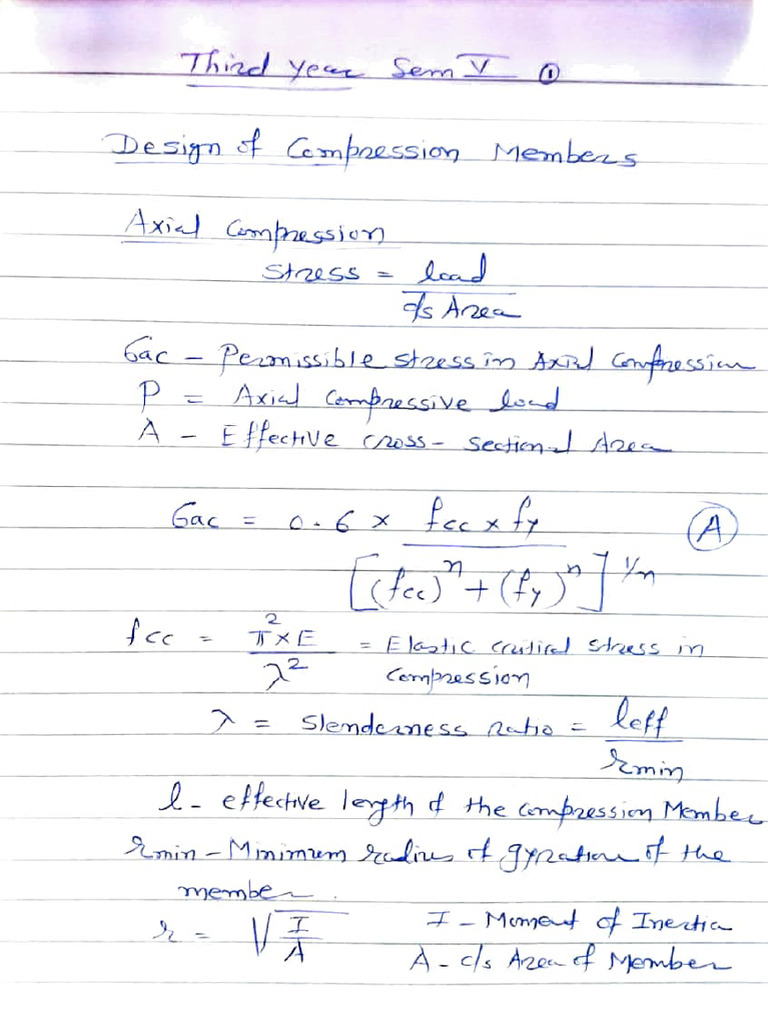 Third Year Sem V ①
Design of Compression Members
Axial Compression
Stress = load / c/s Area
σac - Permissible stress in Axial Compression
P = Axial Compressive load
A - Effective cross-sectional Area
σac = 0.6 × fcc × fy / [(fcc)ⁿ + (fy)ⁿ]^1/n Ⓐ
fcc = π² × E / λ² = Elastic critical stress in
compression
λ = Slenderness ratio = leff / rmin
l - effective length of the compression Member
rmin - Minimum radius of gyration of the
member.
r = √(I / A) I - Moment of Inertia
A - c/s Area of Member